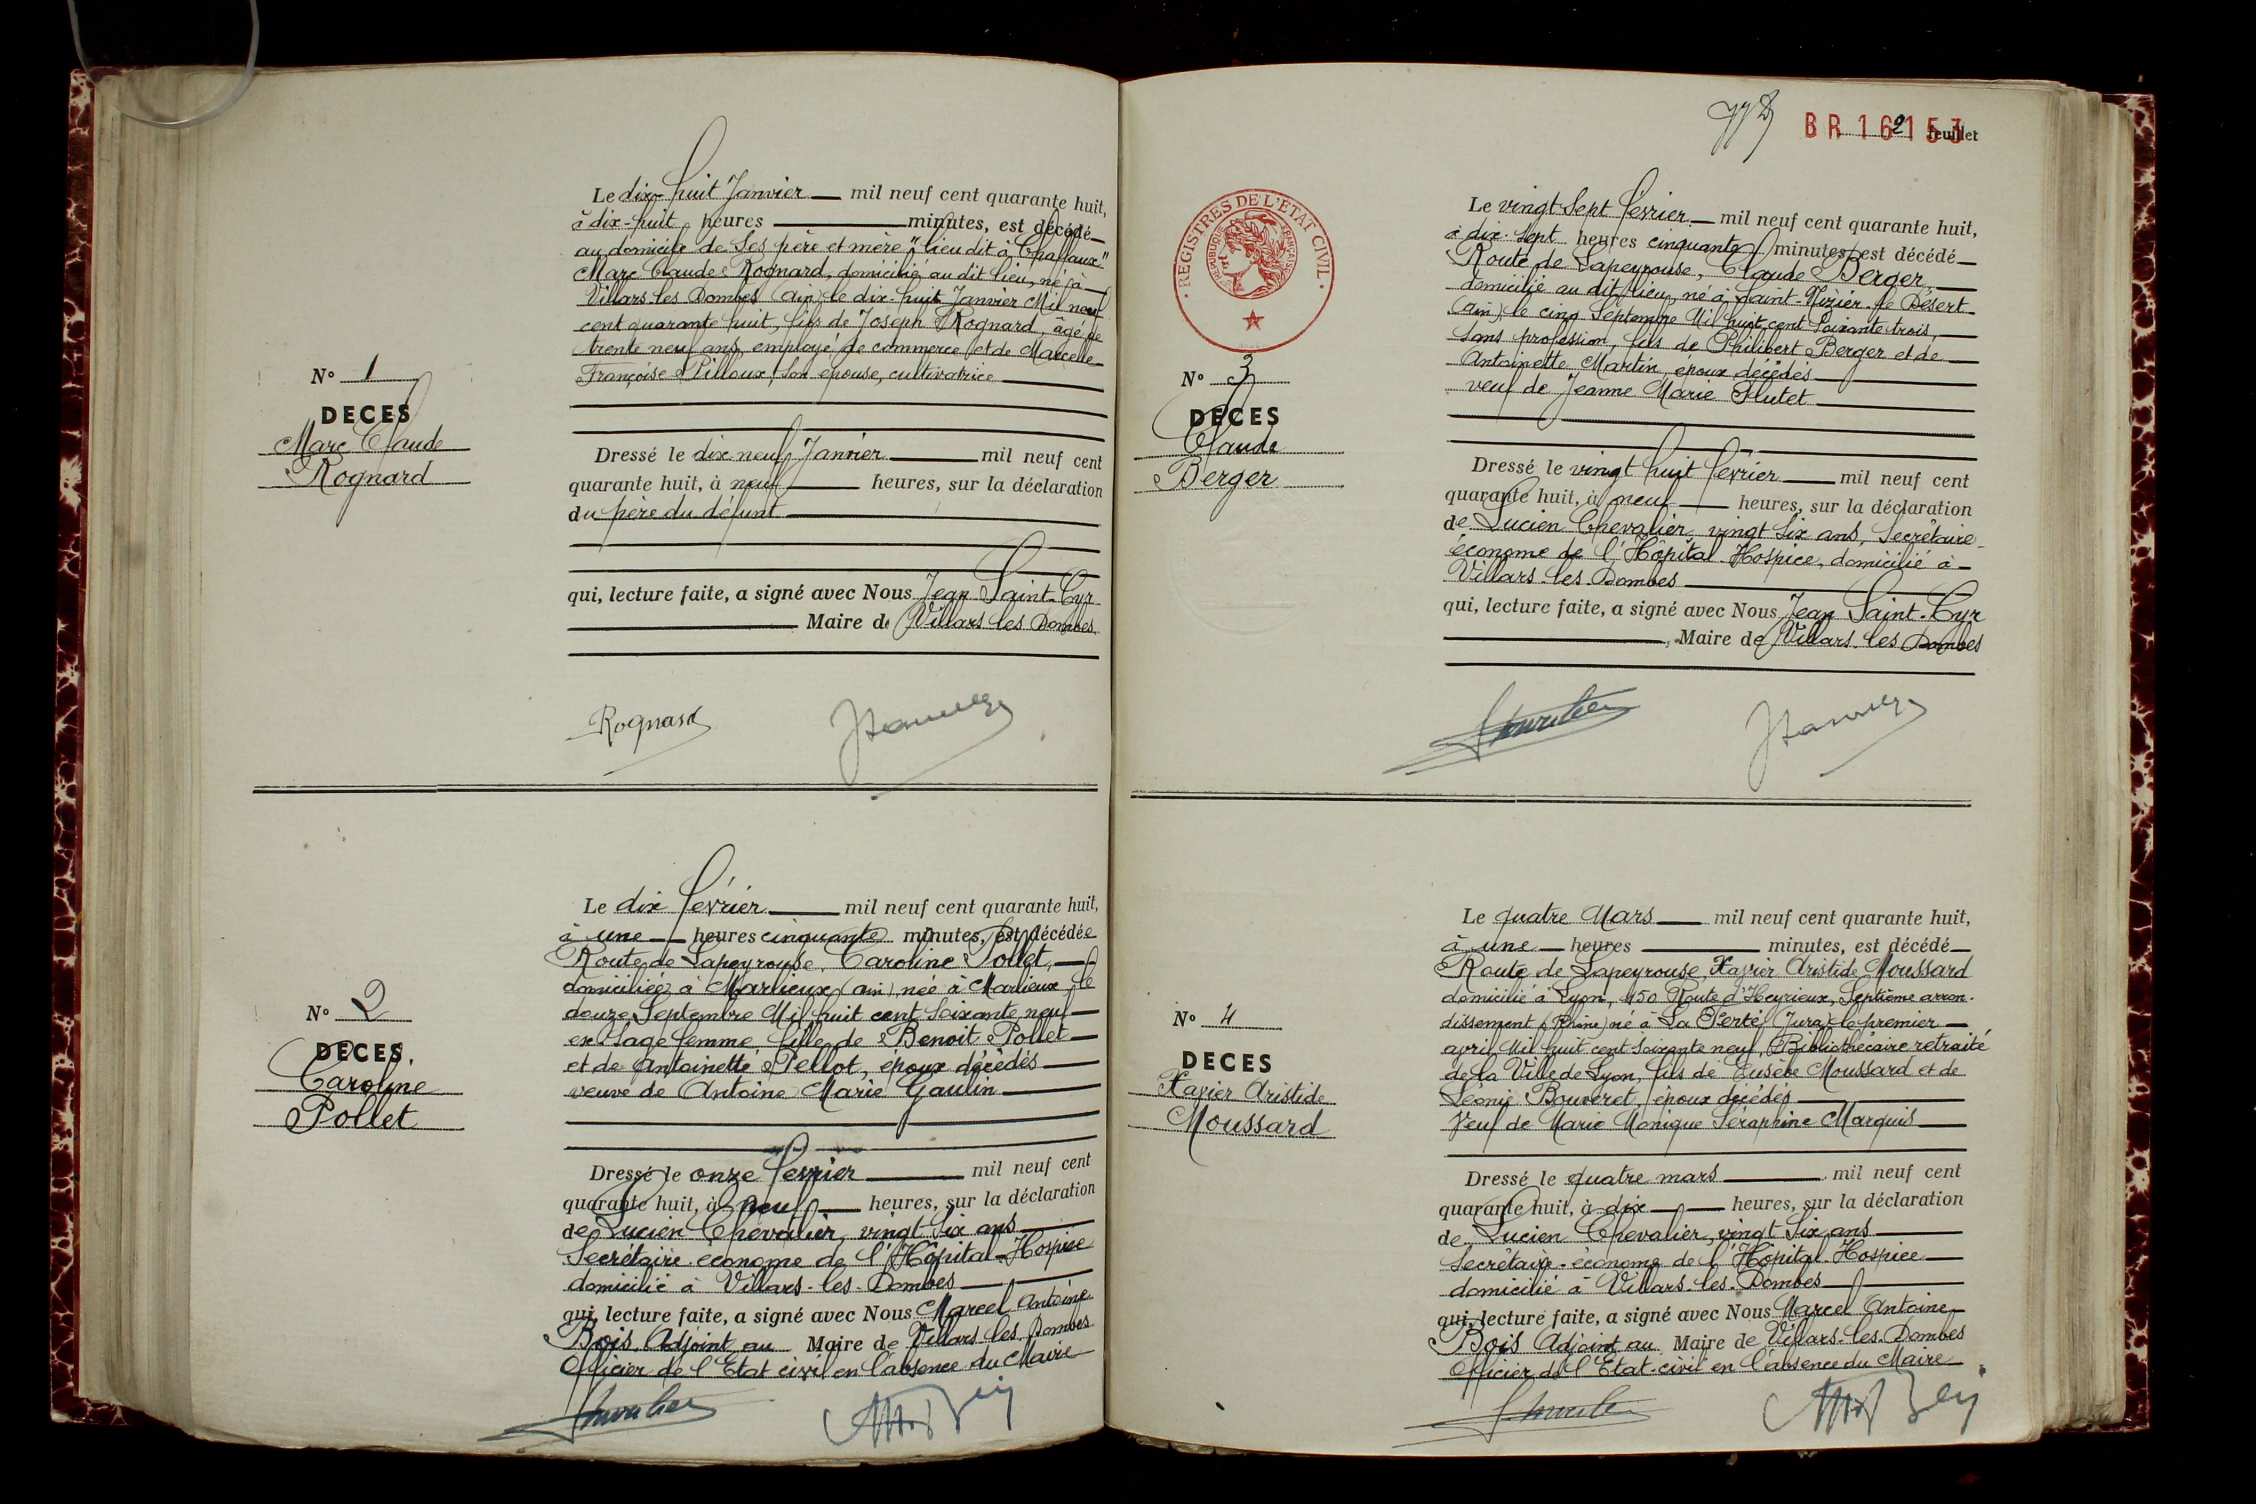 N° 1
DECES
Marc Claude
Rognard
Le dix-huit Janvier mil neuf cent quarante huit,
à dix-huit heures minutes, est décédé
au domicile de ses père et mère "lieu dit à Chaffaux"
Marc Claude Rognard, domicilié au dit lieu, né à
Villars les Dombes (Ain) le dix-huit Janvier Mil neuf
cent quarante huit, fils de Joseph Rognard, âgé de
trente neuf ans, employé de commerce et de Marcelle
Françoise Pilloux, son épouse, cultivatrice
Dressé le dix neuf Janvier mil neuf cent
quarante huit, à neuf heures, sur la déclaration
du père du défunt
qui, lecture faite, a signé avec Nous Jean Saint-Cyr
Maire de Villars les Dombes
Rognard
N° 2
DECES.
Caroline
Pollet
Le dix février mil neuf cent quarante huit,
à une heures cinquante minutes, est décédée
Route de Lapeyrouse, Caroline Pollet,
domiciliée à Marlieux (Ain), née à Marlieux, le
douze Septembre Mil huit cent soixante neuf
ex sage femme, fille de Benoit Pollet
et de Antoinette Pellot, époux décédés
veuve de Antoine Marie Gaulin
Dressé le onze février mil neuf cent
quarante huit, à neuf heures, sur la déclaration
de Lucien Chevalier, vingt six ans
Secrétaire économe de l'Hôpital-Hospice
domicilié à Villars-les-Dombes
qui, lecture faite, a signé avec Nous Marcel Antoine
Bois Adjoint au Maire de Villars les Dombes
Officier de l'Etat civil en l'absence du Maire
BR 162153
2 feuillet
REGISTRES DE L'ETAT CIVIL
REPUBLIQUE FRANÇAISE
N° 3
DECES
Claude
Berger
Le vingt sept février mil neuf cent quarante huit,
à dix-sept heures cinquante minutes, est décédé
Route de Lapeyrouse, Claude Berger,
domicilié au dit lieu, né à Saint-Nizier-le Désert
(Ain) le cinq Septembre Mil huit cent soixante trois
sans profession, fils de Philibert Berger et de
Antoinette Martin, époux décédés
veuf de Jeanne Marie Flutet
Dressé le vingt huit février mil neuf cent
quarante huit, à neuf heures, sur la déclaration
de Lucien Chevalier, vingt six ans, Secrétaire-
économe de l'Hôpital-Hospice, domicilié à
Villars-les-Dombes
qui, lecture faite, a signé avec Nous Jean Saint-Cyr
Maire de Villars-les Dombes
N° 4
DECES
Xavier Aristide
Moussard
Le quatre Mars mil neuf cent quarante huit,
à une heures minutes, est décédé
Route de Lapeyrouse, Xavier Aristide Moussard
domicilié à Lyon, 450 Route d'Heyrieux, Septième arron-
dissement (Rhône) né à La Ferté (Jura) le premier
avril Mil huit cent soixante neuf, Bibliothécaire retraité
de la Ville de Lyon, fils de Eusèbe Moussard et de
Léonie Bouveret, époux décédés
Veuf de Marie Monique Séraphine Marquis
Dressé le quatre mars mil neuf cent
quarante huit, à dix heures, sur la déclaration
de Lucien Chevalier, vingt six ans
Secrétaire-économe de l'Hôpital-Hospice
domicilié à Villars-les-Dombes
qui, lecture faite, a signé avec Nous Marcel Antoine
Bois Adjoint au Maire de Villars-les-Dombes
Officier de l'Etat-civil en l'absence du Maire